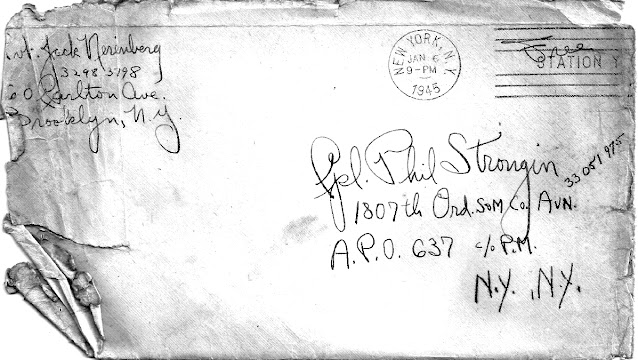 Pvt. Jack Nerenberg
32985798
60 Carlton Ave.
Brooklyn, N.Y.
NEW YORK, N.Y.
JAN 6
9-PM
1945
Free
STATION Y
Cpl. Phil Strongin 33051975
1807th Ord. S&M Co. Avn.
A.P.O. 637 c/o P.M.
N.Y., N.Y.